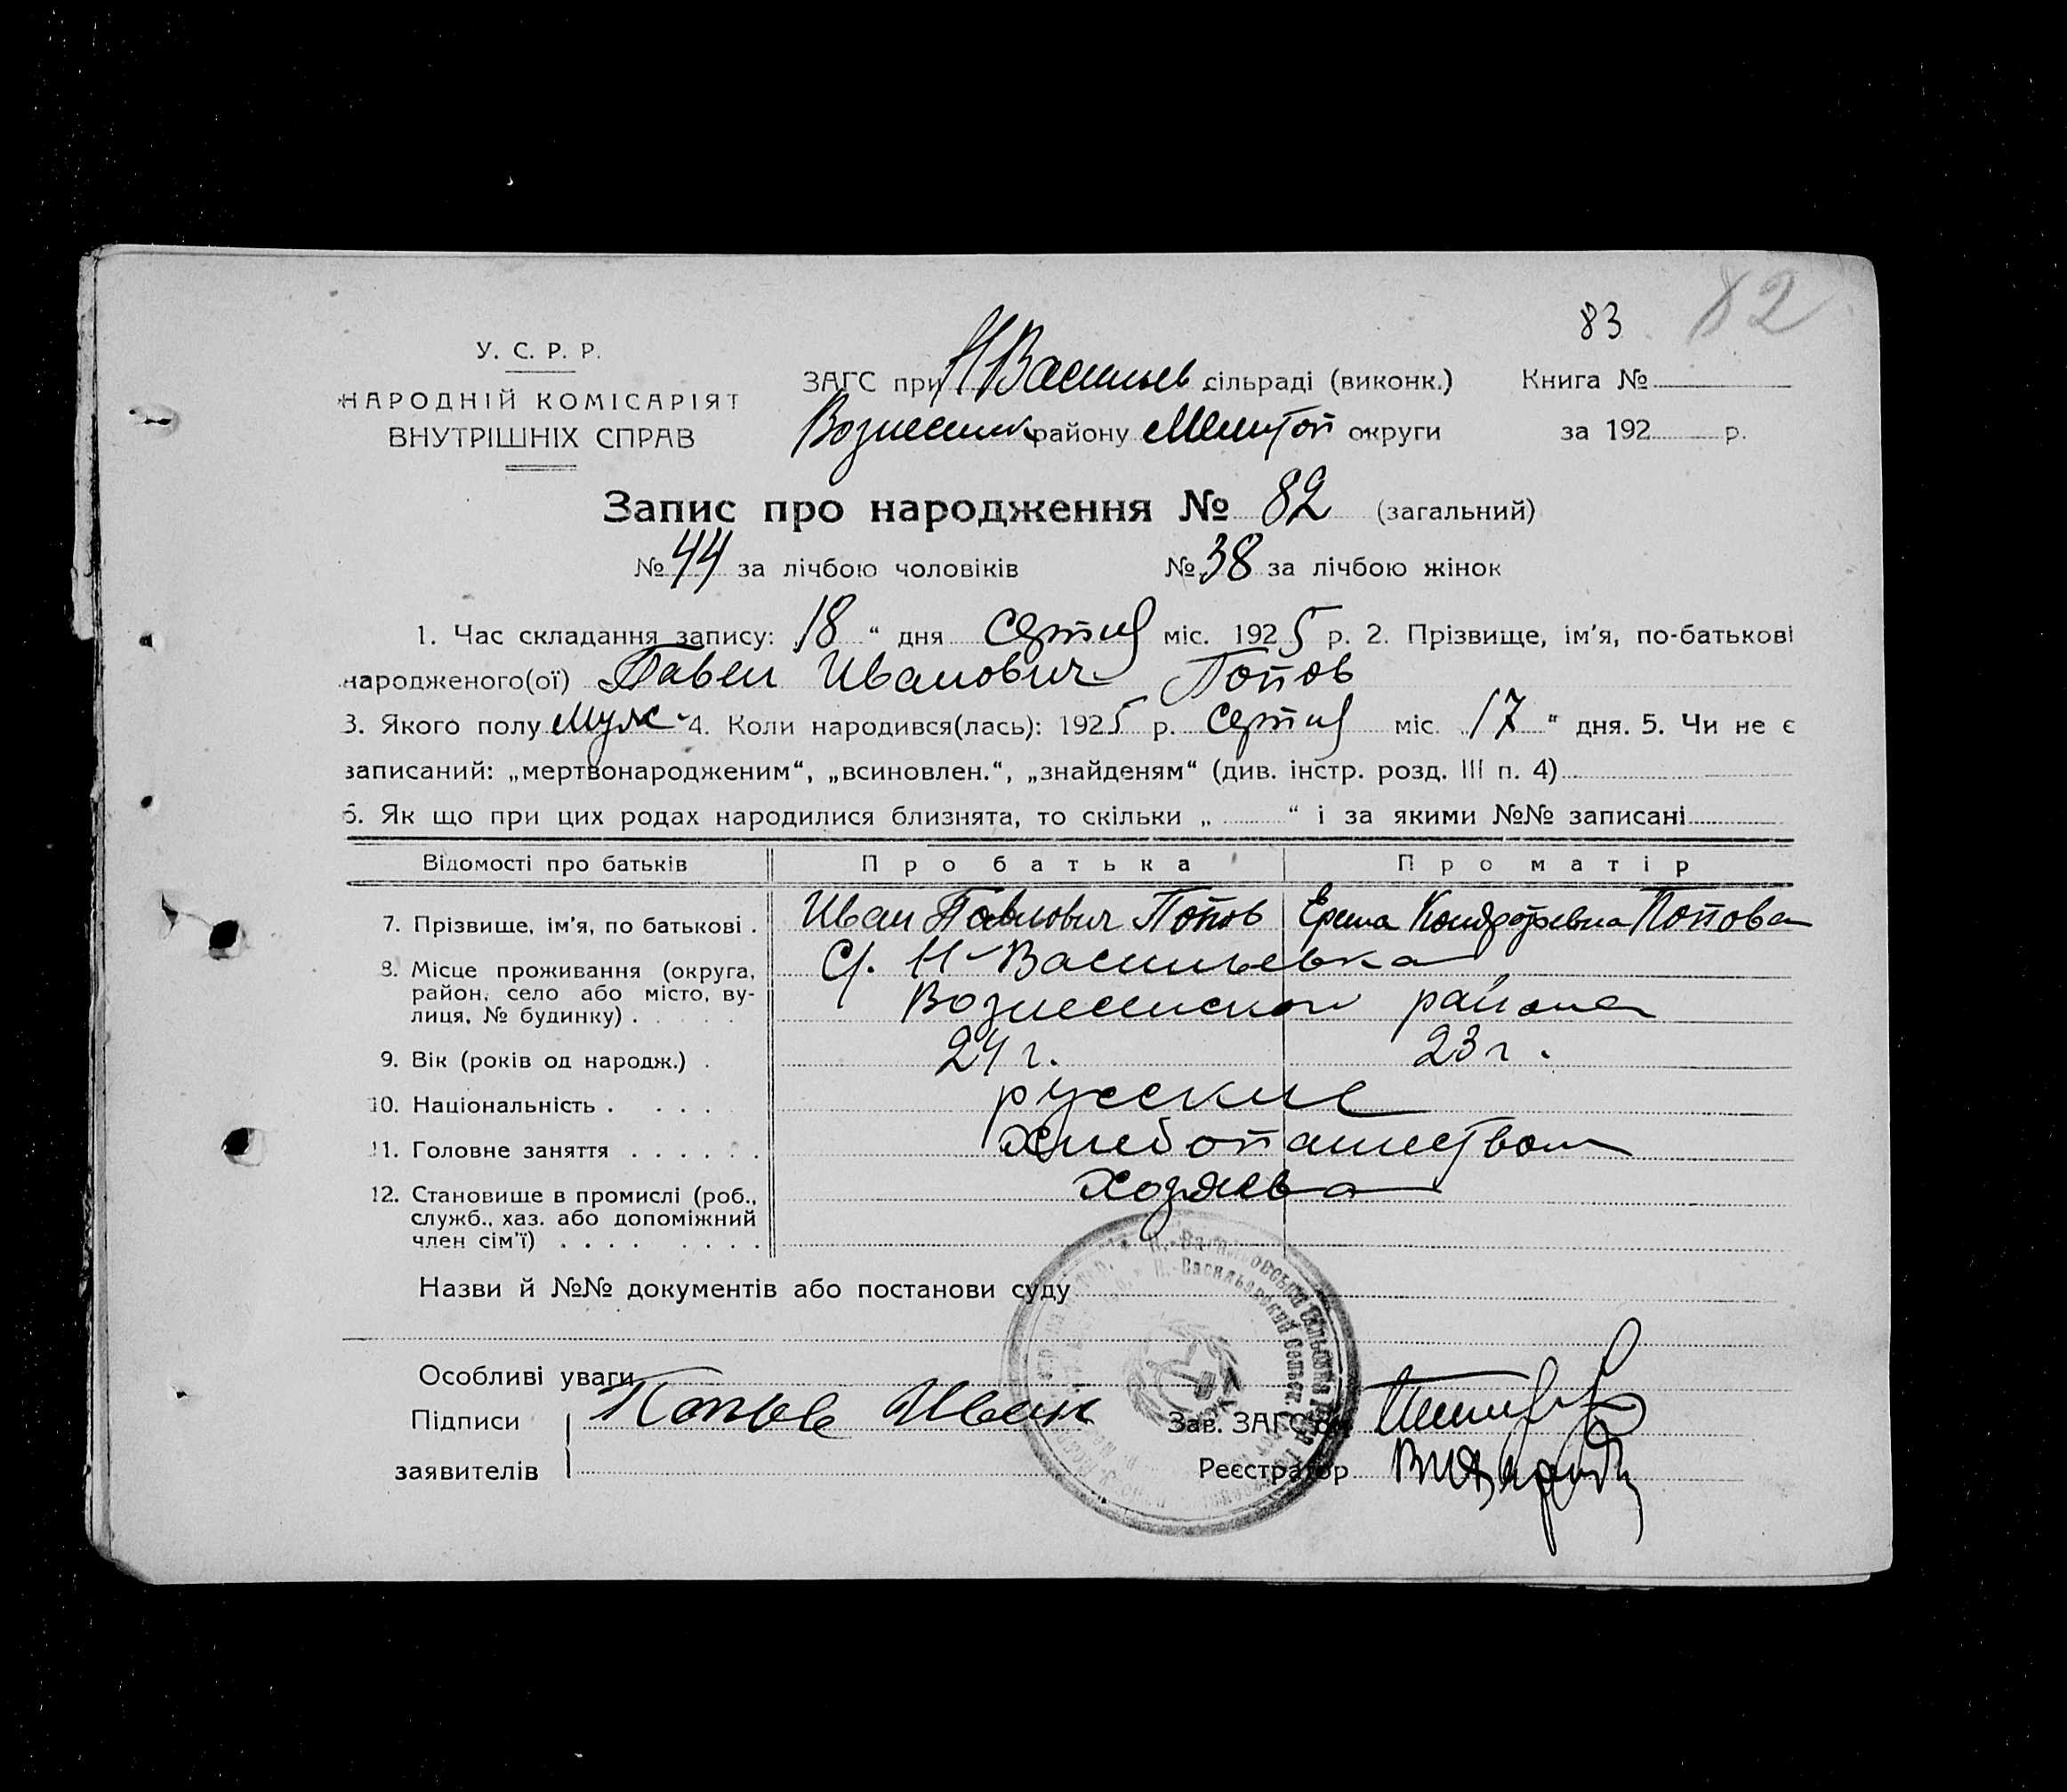 83 82
У. С. Р. Р.
НАРОДНІЙ КОМІСАРІЯТ
ВНУТРІШНІХ СПРАВ
ЗАГС при Н Васильев сільраді (виконк.) Книга №
Вознесенск району Мелитоп округи за 192 р.
Запис про народження № 82 (загальний)
№ 44 за лічбою чоловіків № 38 за лічбою жінок
1. Час складання запису: 18 “ дня міс. 1925 р. 2. Прізвище, ім’я, по-батькові
народженого(ої) Павел Иванович Попов
3. Якого полу Муж 4. Коли народився(лась): 1925 р. міс. 17 “ дня. 5. Чи не є
записаний: „мертвонародженим“, „всиновлен.“, „знайденям“ (див. інстр. розд. III п. 4)
6. Як що при цих родах народилися близнята, то скільки „ “ і за якими №№ записані
Відомості про батьків Про батька Про матір
7. Прізвище, ім’я, по батькові . Иван Павлович Попов Попова
8. Місце проживання (округа, С. Н-Васильевка
район, село або місто, ву-
лиця, № будинку) . Вознесенского района
9. Вік (років од народж.) . 24 г. 23 г.
10. Національність . . . . русские
11. Головне заняття . . . . . . хлебопашеством
12. Становище в промислі (роб., хозяева
служб., хаз. або допоміжний
член сім’ї) . . . . . . . .
Назви й №№ документів або постанови суду
Особливі уваги
Підписи Попов Иван Зав. ЗАГС'ом
заявителів Реєстратор